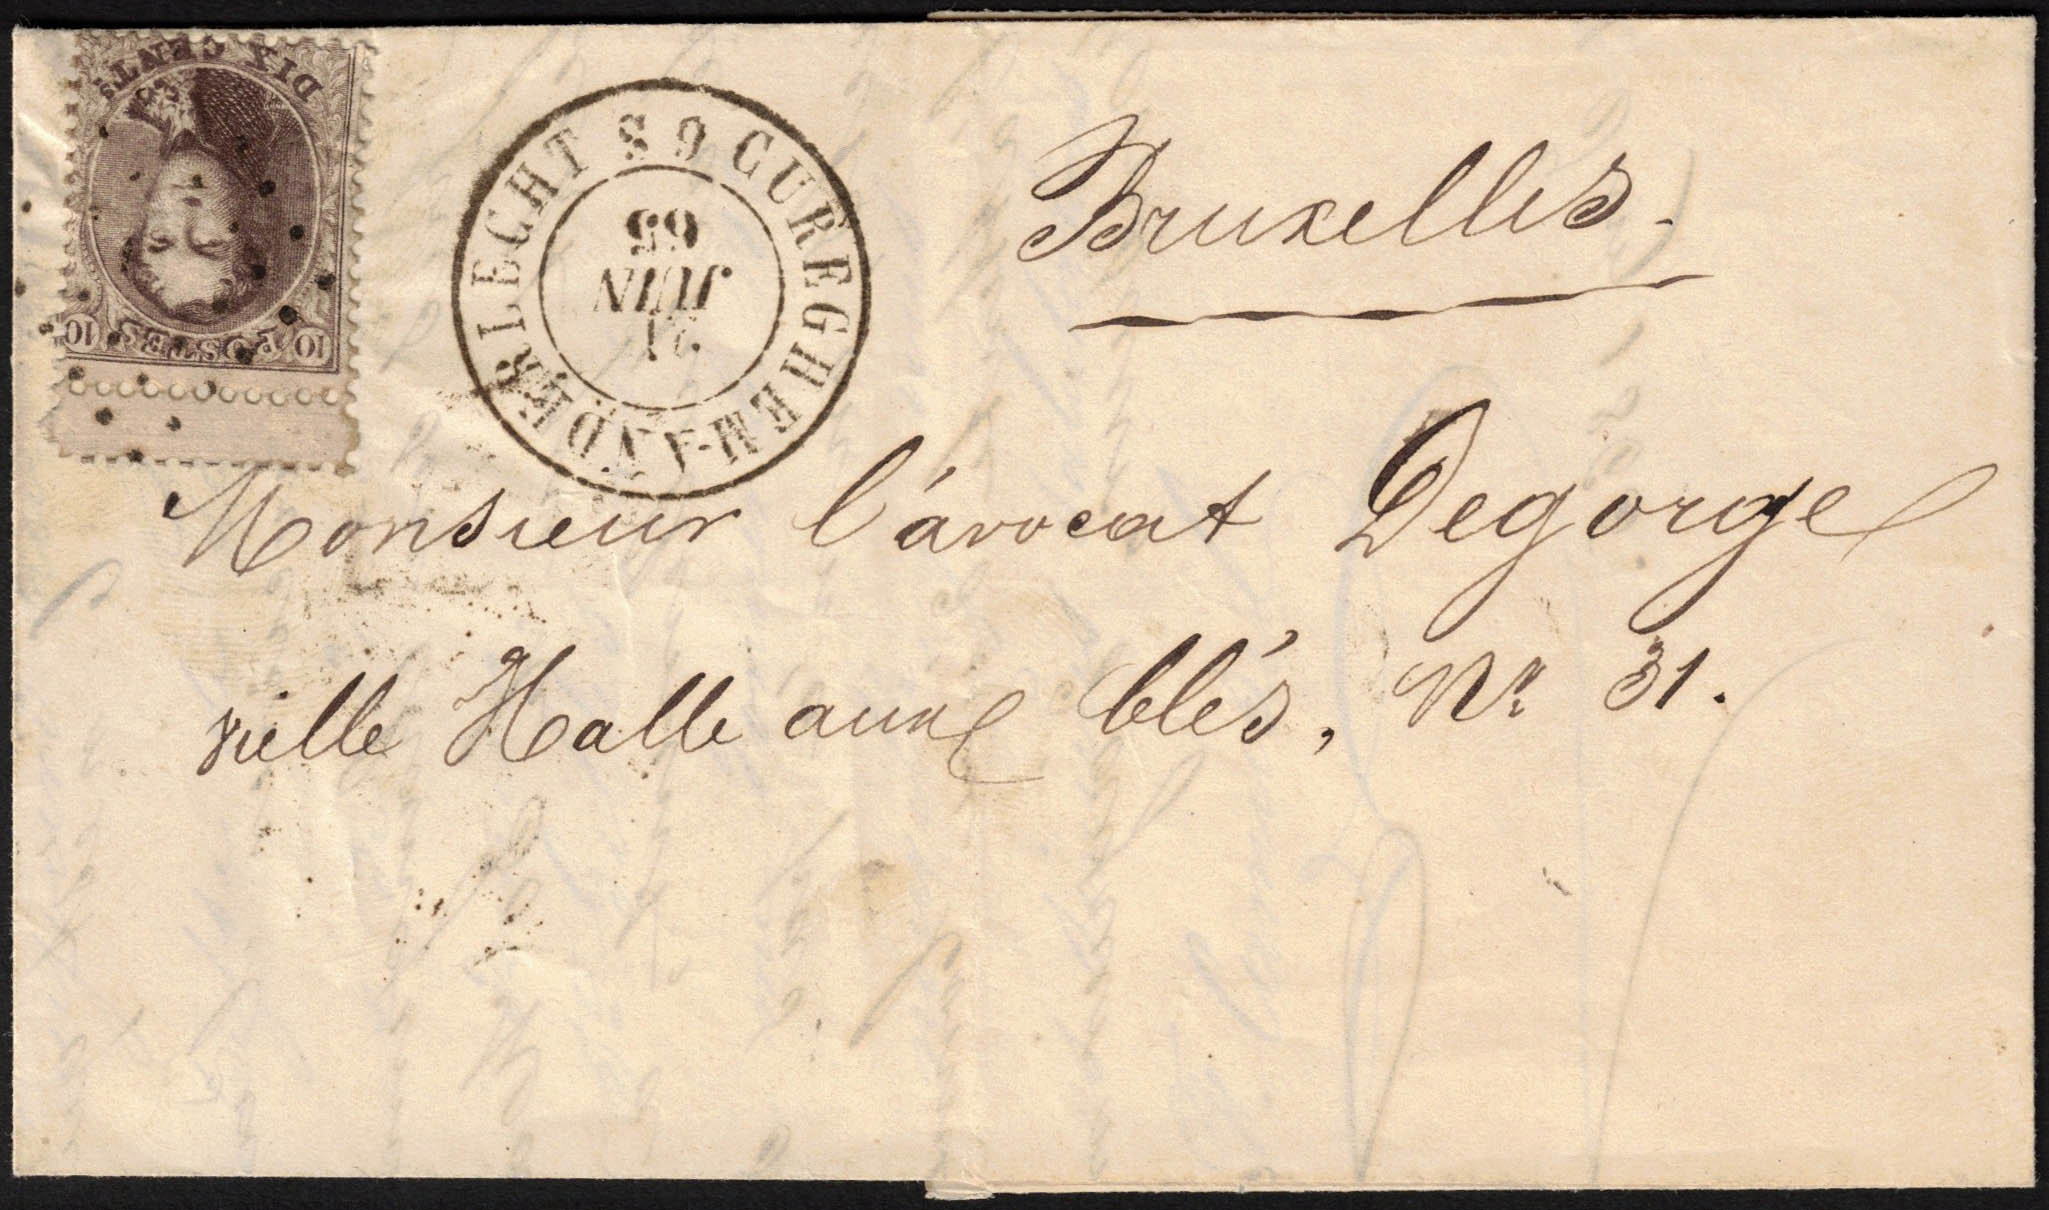 DIX CENTs
10 POSTES 10
CUREGHEM-ANDERLECHT
21
JUIN
65
Bruxelles.
Monsieur l'avocat Degorge
vielle Halle aux blés, No 31.